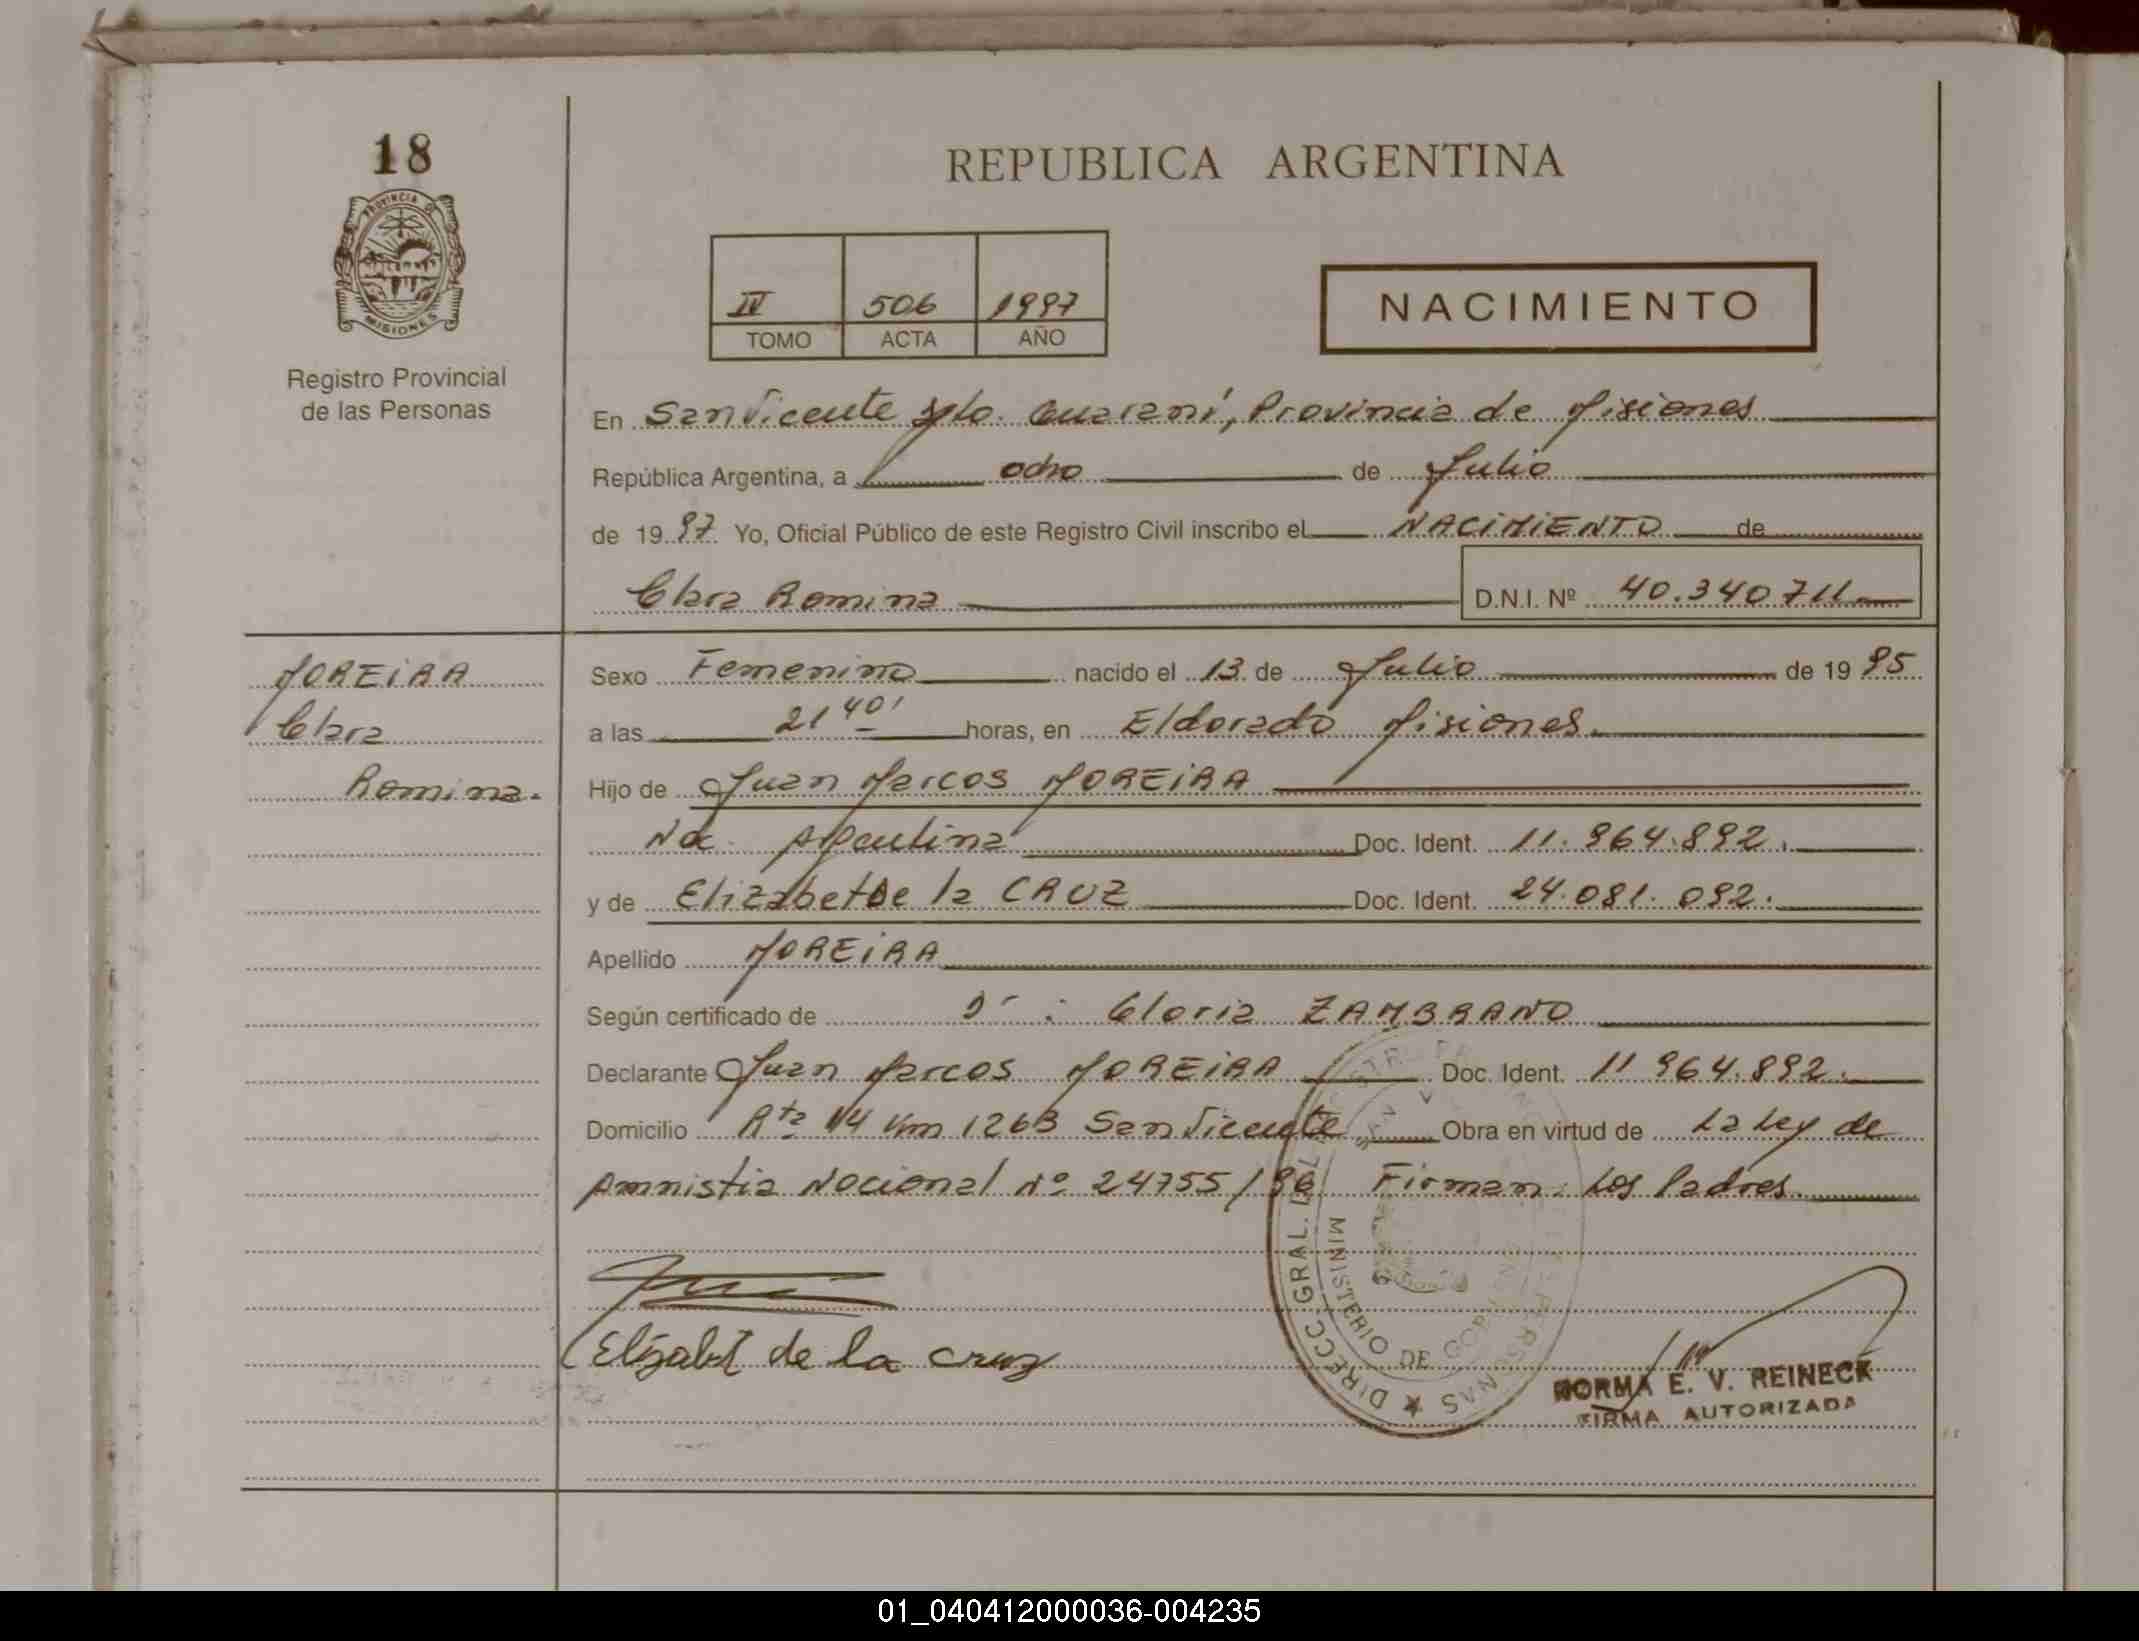 18
PROVINCIA DE
MISIONES
Registro Provincial
de las Personas
REPUBLICA ARGENTINA
IV 506 1997
TOMO ACTA AÑO
NACIMIENTO
En San Vicente Dpto. Guaraní, Provincia de Misiones
República Argentina, a ocho de Julio
de 1997 Yo, Oficial Público de este Registro Civil inscribo el NACIMIENTO de
Clara Romina D.N.I. Nº 40.340711
MOREIRA
Clara
Romina.
Sexo Femenino nacido el 13 de Julio de 1995
a las 21 40' horas, en Eldorado Misiones.
Hijo de Juan Marcos MOREIRA
Nac. Argentina Doc. Ident. 11.964.892.
y de Elizabet De la CRUZ Doc. Ident. 24.081.092.
Apellido MOREIRA
Según certificado de Dr : Gloria ZAMBRANO
Declarante Juan Marcos MOREIRA Doc. Ident. 11964.892.
Domicilio Rta 14 Km 1263 San Vicente Obra en virtud de La Ley de
Amnistia Nacional Nº 24755/96 Firman: Los Padres.
Elizabet de la cruz
DIRECC. GRAL. DEL PERSONAS
MINISTERIO DE
NORMA E. V. REINECK
FIRMA AUTORIZADA
01_040412000036-004235